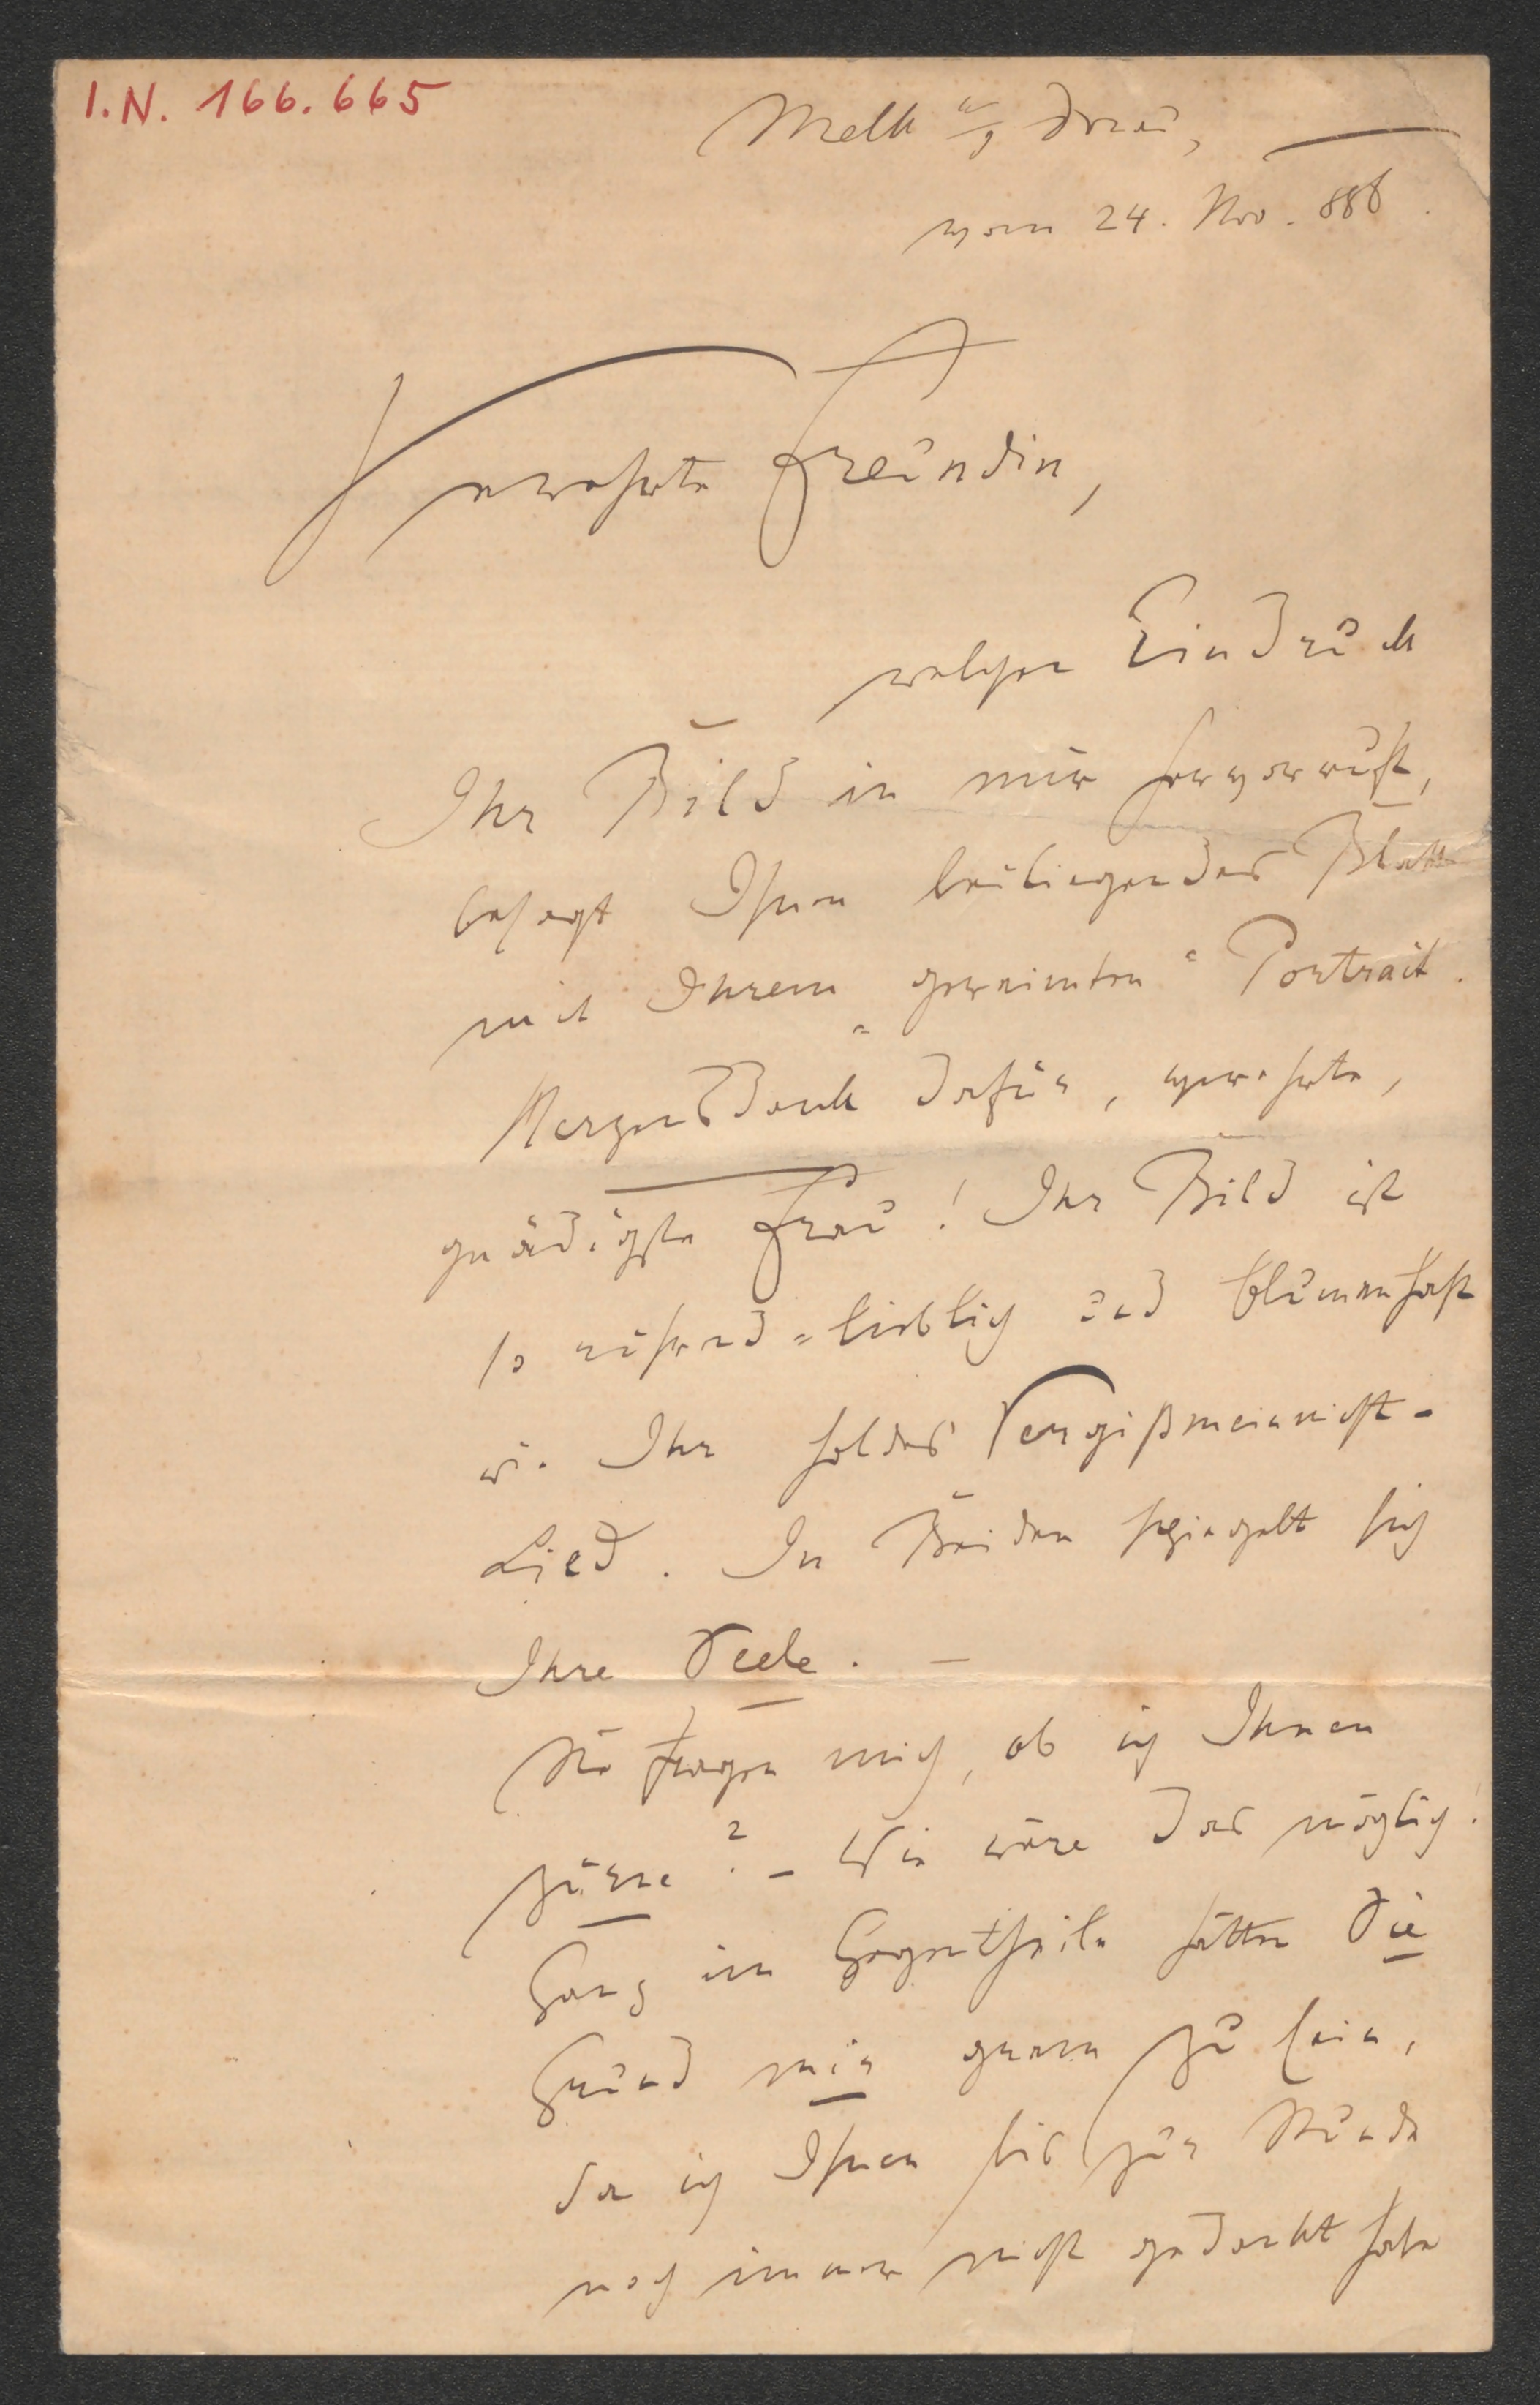 I.N. 166.665
Melk a/d Donau,
vom 24. Nov. 886.
Verehrte Freundin,
welchen Eindruck
Ihr Bild in mir hervorruft,
besagt Ihnen beiliegendes Blatt
mit Ihrem "gereimten" Portrait.
Herzensdank dafür, verehrte,
gnädigste Frau! Ihr Bild ist
so rührend-lieblich und blumenhaft
wie Ihr holdes Vergißmeinnicht-
Lied. In Beiden spiegelt sich
Ihre Seele. —
Sie fragen mich, ob ich Ihnen
zürne? – Wie wäre das möglich!
Ganz im Gegentheile hätten Sie
Grund mir gram zu sein,
da ich Ihnen bis zur Stunde
noch immer nicht gedankt habe